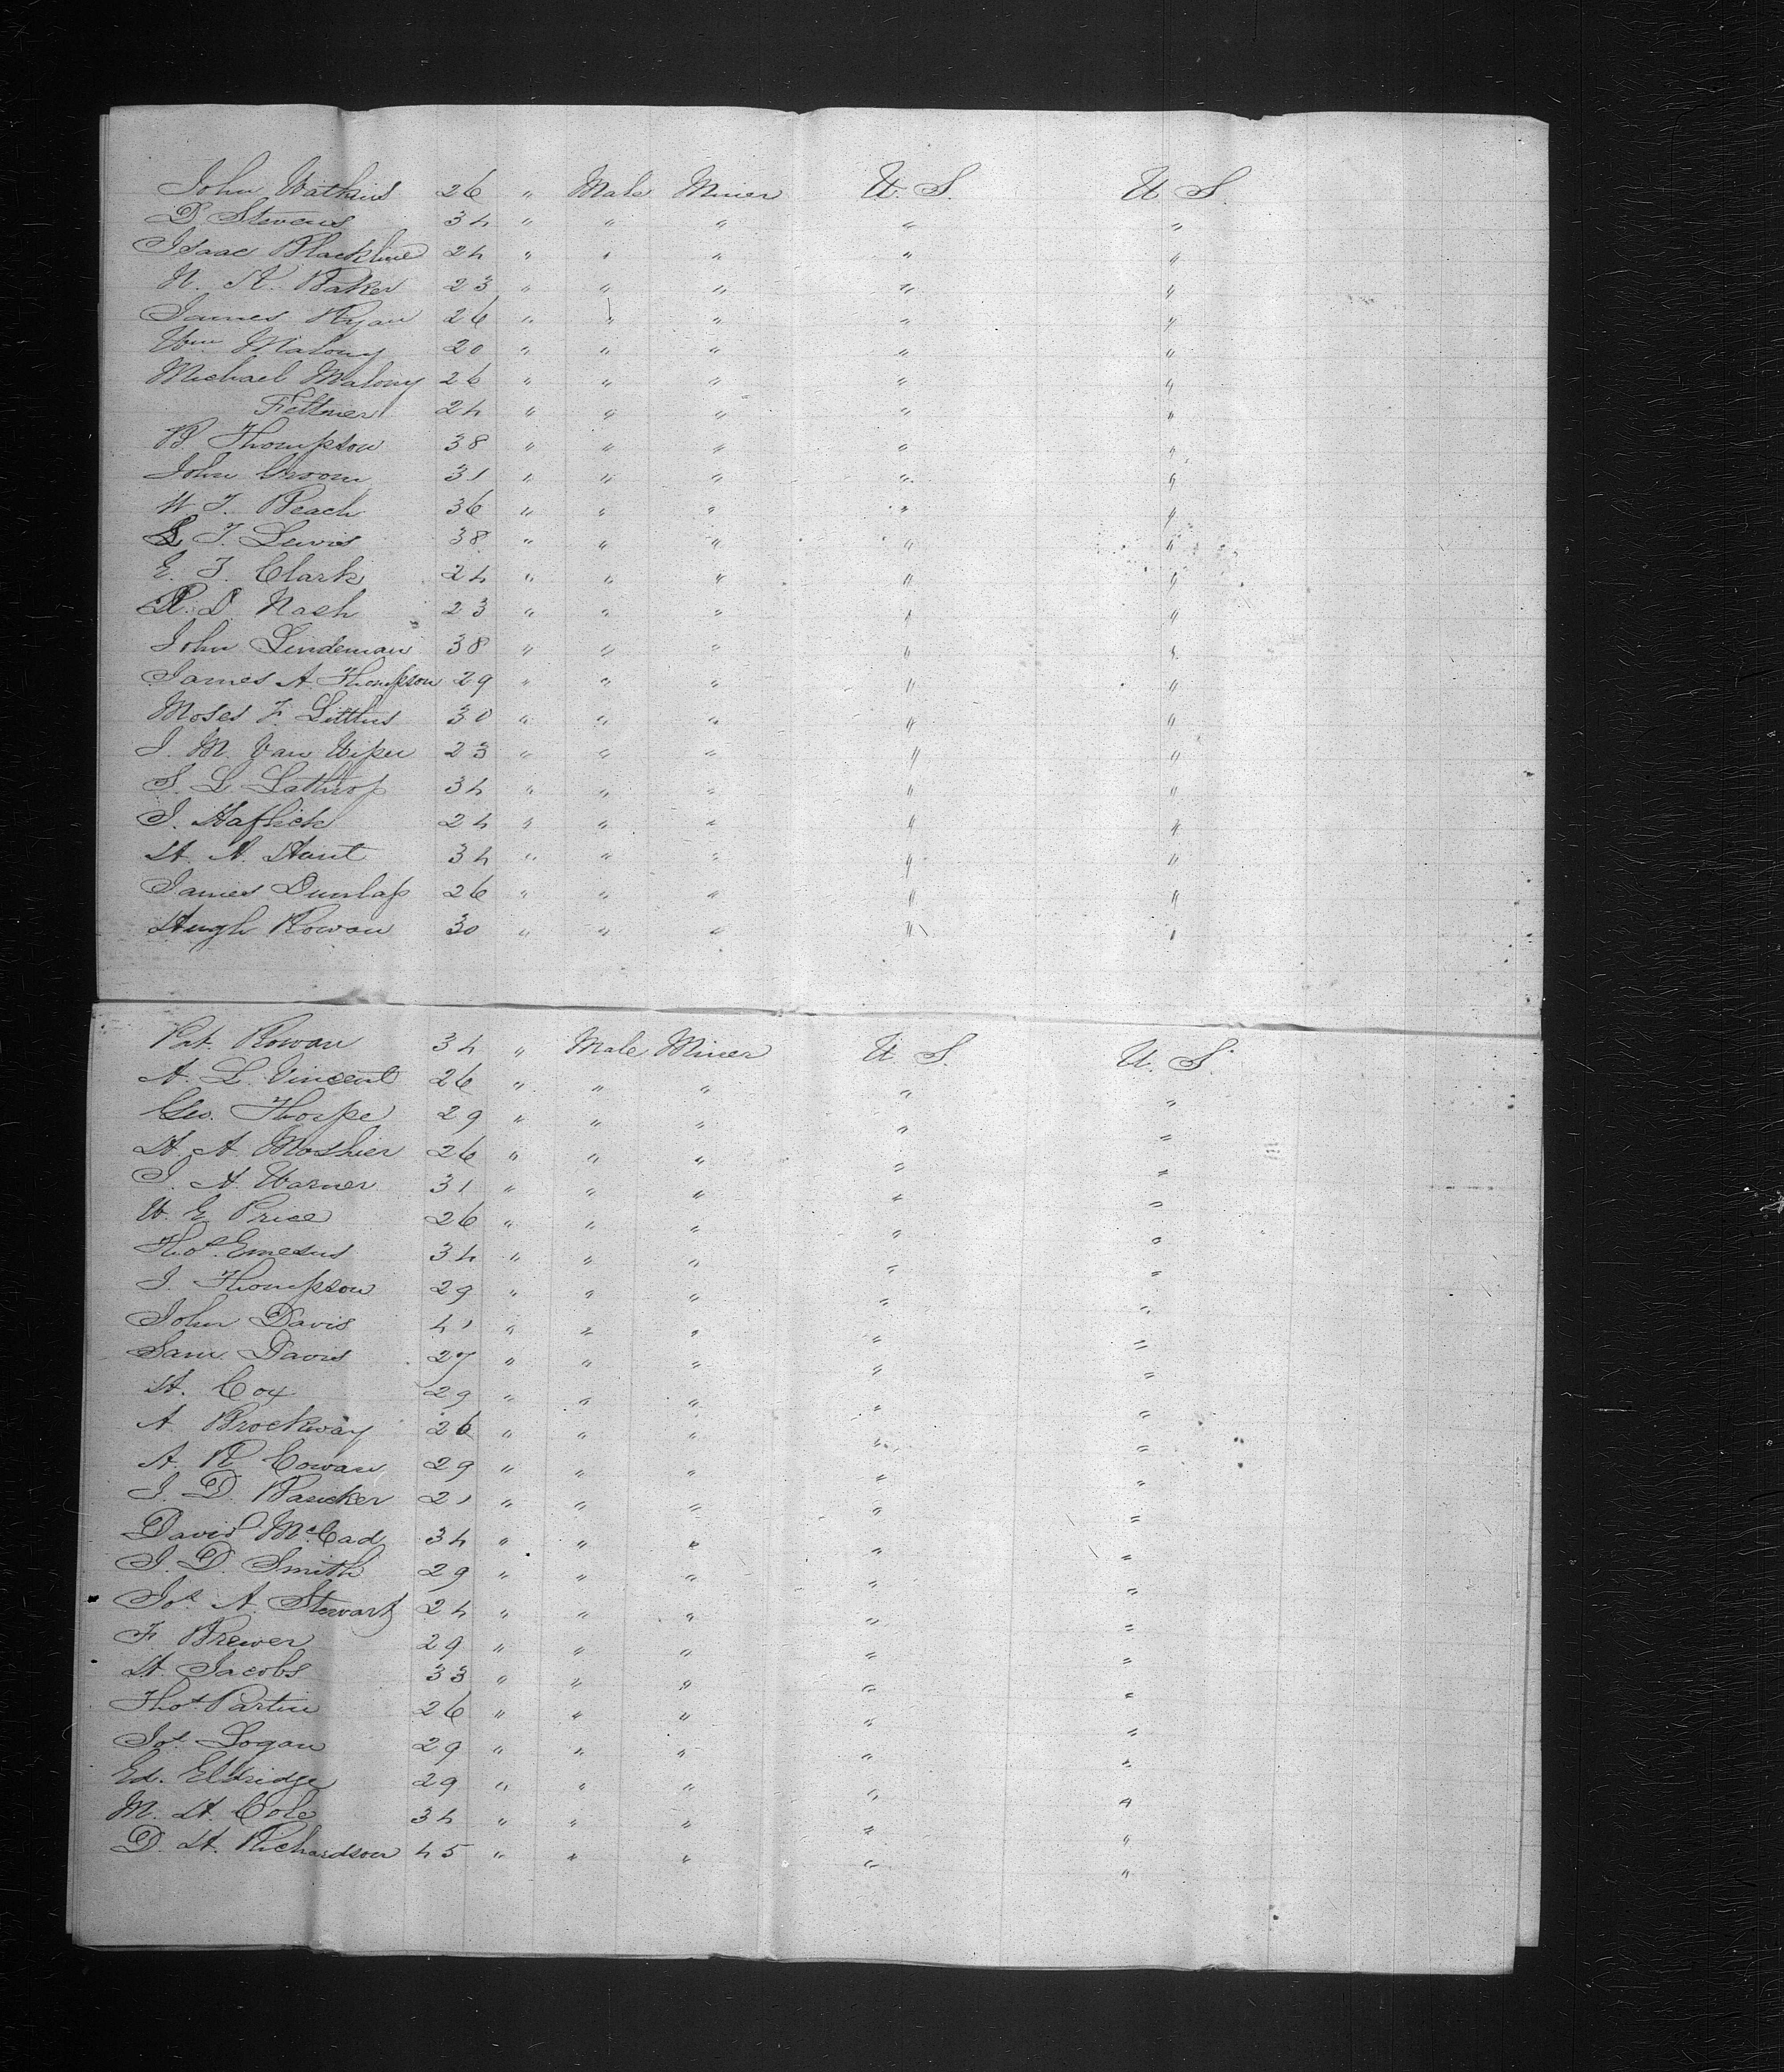 John Watkins 26 " Male Miner U. S. U S.
D. Stevens 34 " " " " "
Isaac Blackline 24 " " " " "
N. A. Baker 23 " " " " "
James Ryan 26 " " " " "
Wm Malony 20 " " " " "
Michael Malony 26 " " " " "
Feltner 24 " " " " "
B Thompson 38 " " " " "
John Groom 31 " " " " "
W T. Beach 36 " " " " "
L T. Lewis 38 " " " " "
E. T. Clark 24 " " " " "
R. D. Nash 23 " " " " "
John Lindeman 38 " " " " "
James A. Thompson 29 " " " " "
Moses F. Littlus 30 " " " " "
J. M. Van Wiper 23 " " " " "
S. L. Lathrop 34 " " " " "
J. Haflich 24 " " " " "
H. A. Hant 34 " " " " "
James Dunlap 26 " " " " "
Hugh Rowan 30 " " " " "
Pat. Rowan 34 " Male Miner U S. U. S.
A. L. Vincent 26 " " " " "
Geo. Thorpe 29 " " " " "
H. A. Moshier 26 " " " " "
J. A. Warner 31 " " " " "
W. E. Price 26 " " " " "
Thos. Emesus 34 " " " " "
J. Thompson 29 " " " " "
John Davis 41 " " " " "
Sam Davis 27 " " " " "
H. Cox 29 " " " " "
A Brockway 26 " " " " "
A. R. Cowan 29 " " " " "
J. D. Rancker 21 " " " " "
David McCad 34 " " " " "
J. D. Smith 29 " " " " "
Jos A. Stewart 24 " " " " "
F. Brewer 29 " " " " "
H. Jacobs 33 " " " " "
Thos Partin 26 " " " " "
Jos. Logan 29 " " " " "
Ed. Eldridge 29 " " " " "
M. H. Cole 34 " " " " "
D. H. Richardson 45 " " " " "